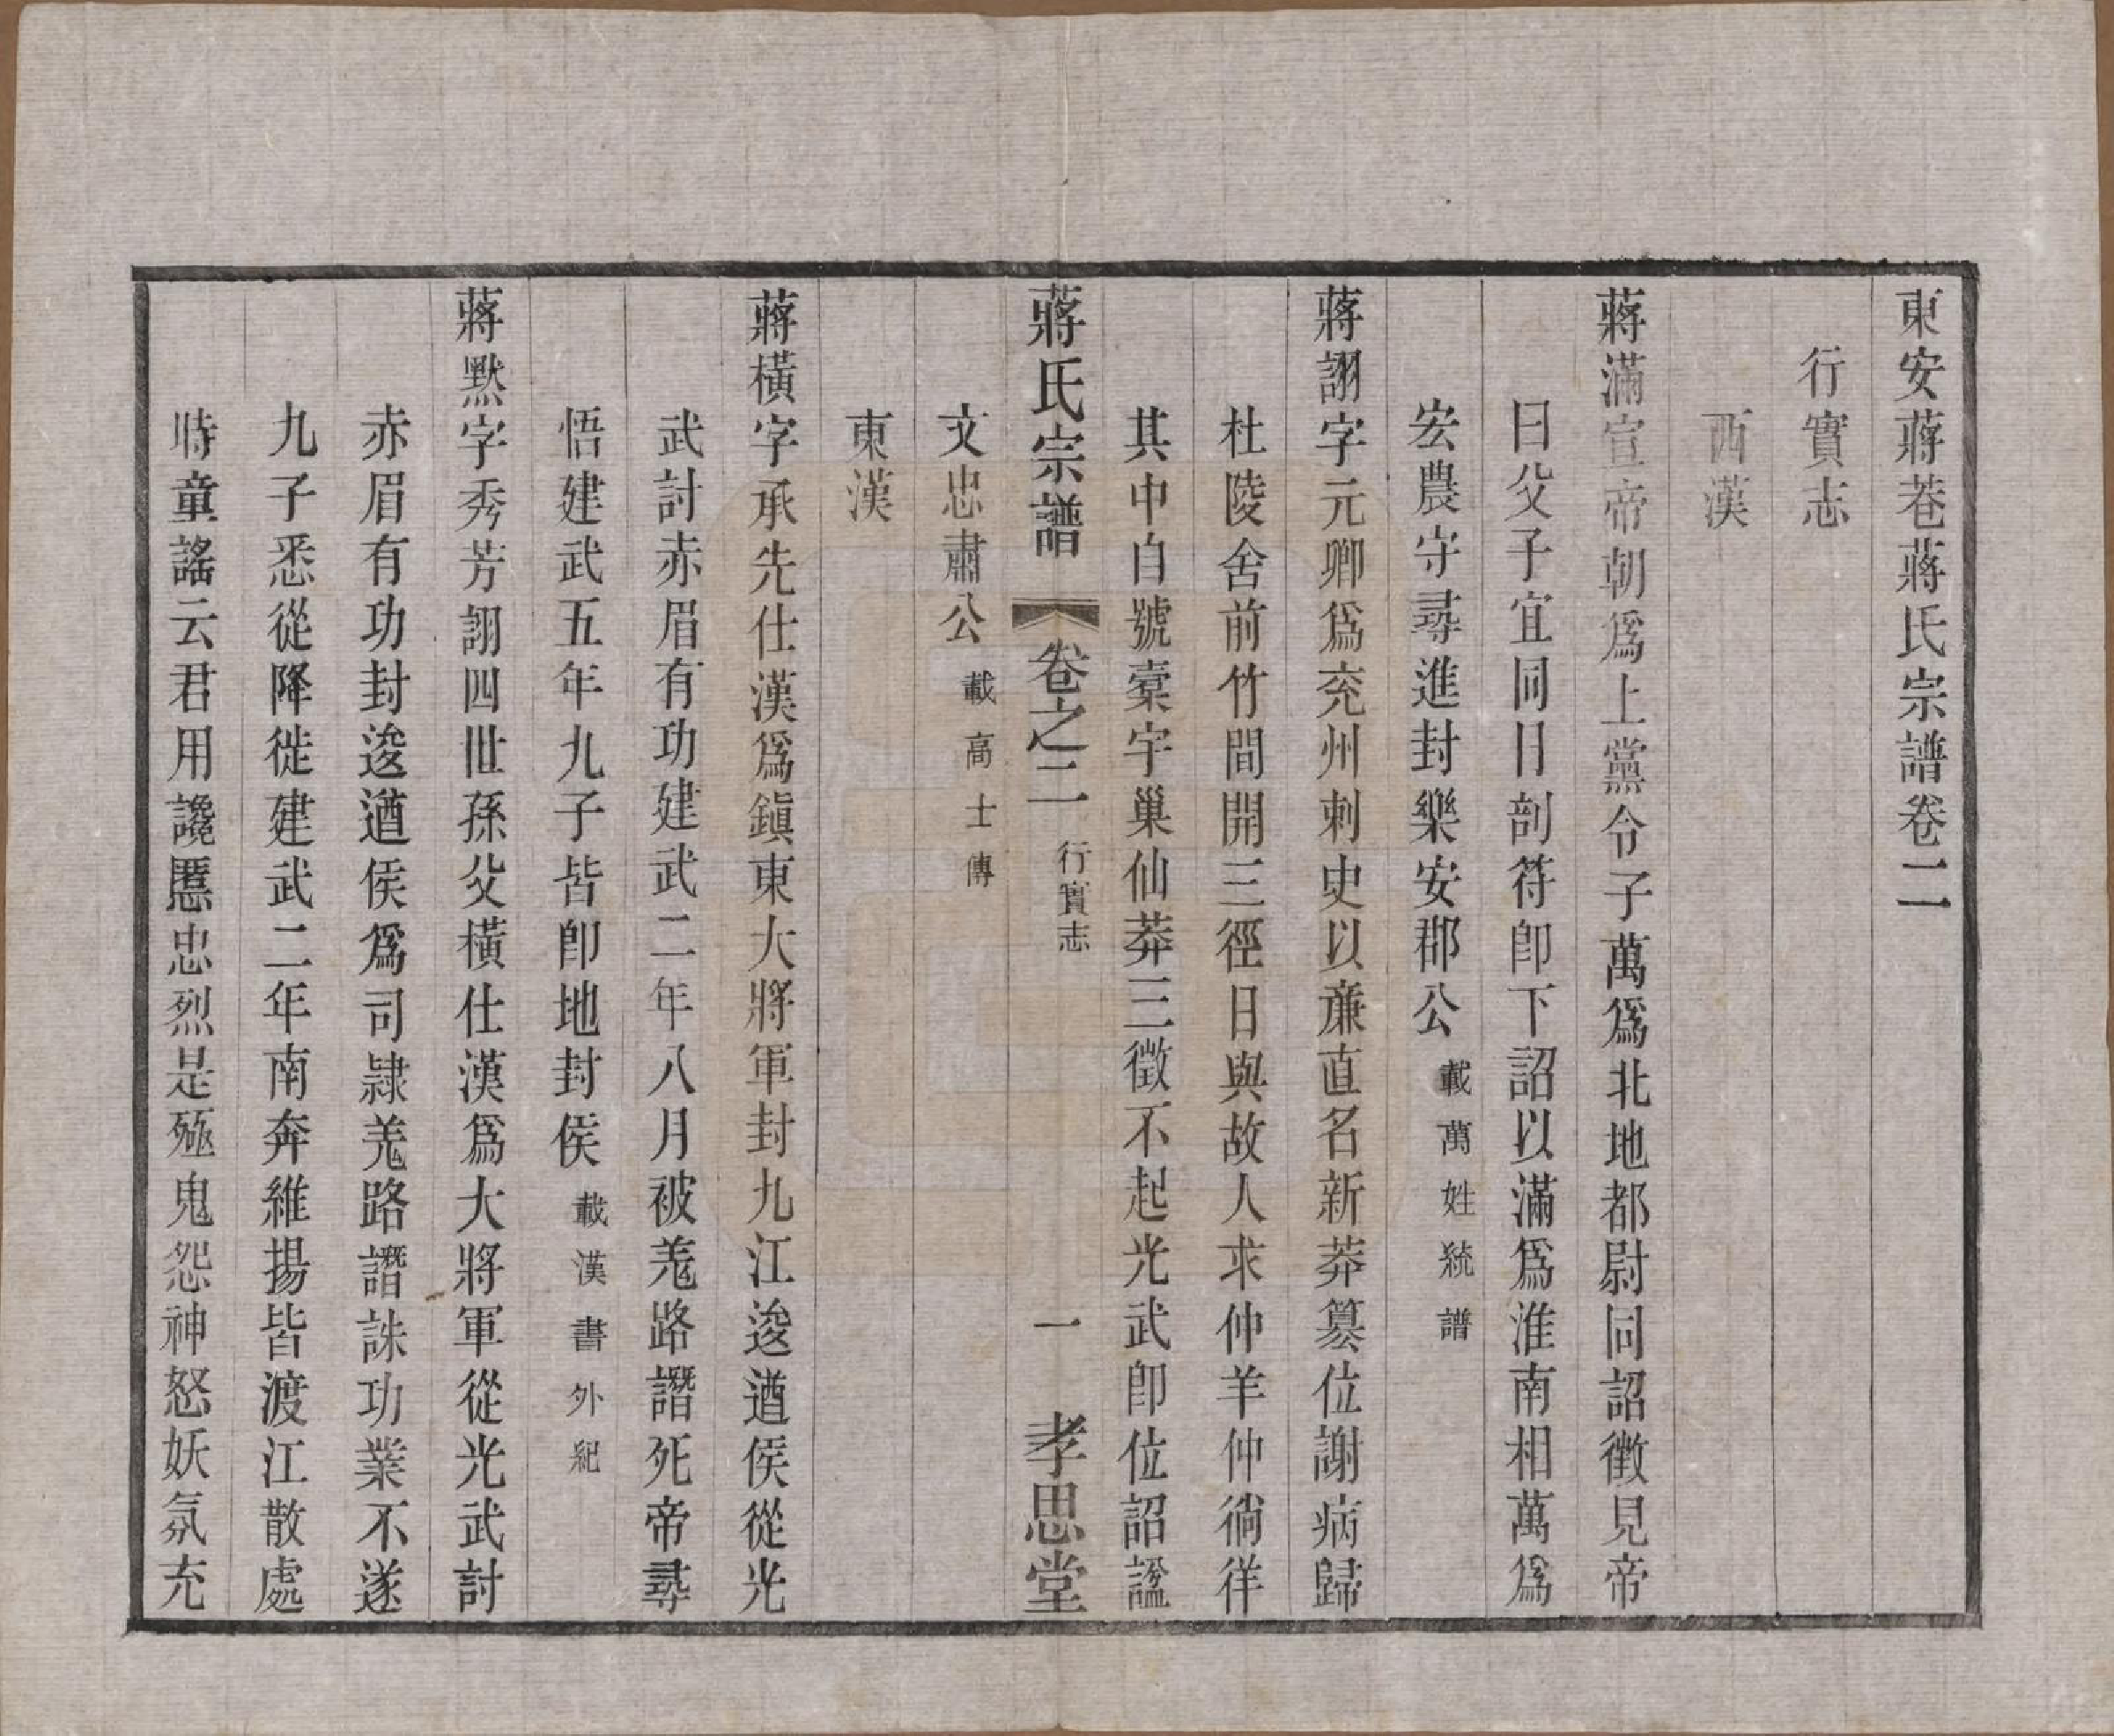 東安蔣巷蔣氏宗譜卷二
行實志
西漢
蔣滿宣帝朝爲上黨令子萬爲北地都尉同詔徵見帝
曰父子宜同日剖符卽下詔以滿爲淮南相萬爲
宏農守尋進封樂安郡公載萬姓統譜
蔣詡字元卿爲兖州刺史以廉直名新莽簒位謝病歸
杜陵舍前竹間開三徑日與故人求仲羊仲徜徉
其中自號槖宇巢仙莽三徵不起光武卽位詔謚
文忠肅公載高士傳
蔣氏宗譜 卷之二 行實志 一 孝思堂
東漢
蔣橫字承先仕漢爲鎭東大將軍封九江逡遒侯從光
武討赤眉有功建武二年八月被羗路譖死帝尋
悟建武五年九子皆卽地封侯載漢書外紀
蔣默字秀芳詡四世孫父橫仕漢爲大將軍從光武討
赤眉有功封逡遒侯爲司隷羗路譖誅功業不遂
九子悉從降徙建武二年南奔維揚皆渡江散處
時童謠云君用讒慝忠烈是殛鬼怨神怒妖氛充